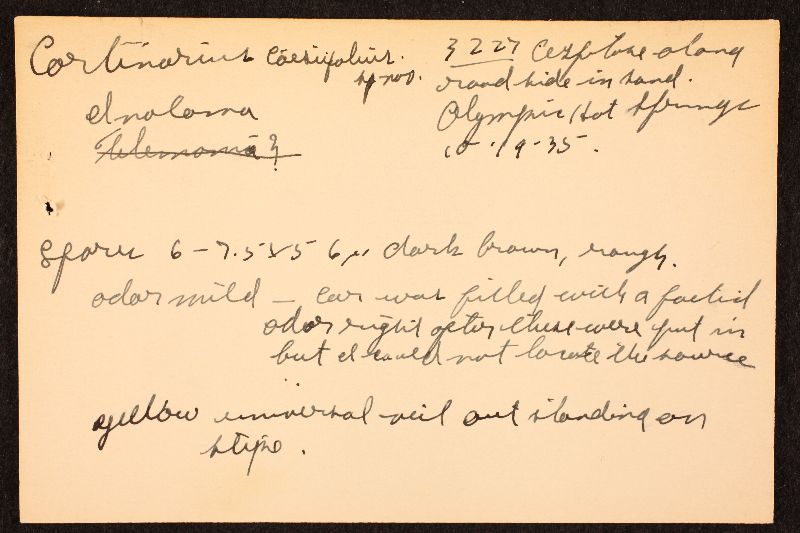 Cortinarius caesiifolius.
sp nov.
Inoloma
Telemonia?
3227 Cespitose along
road side in sand.
Olympic Hot Springs
10-19-35.
Spores 6-7.5 x 5 6 µ dark brown, rough.
odor mild - car was filled with a foetid
odor right after these were put in
but I could not locate the source
yellow universal veil out standing on
stipe.